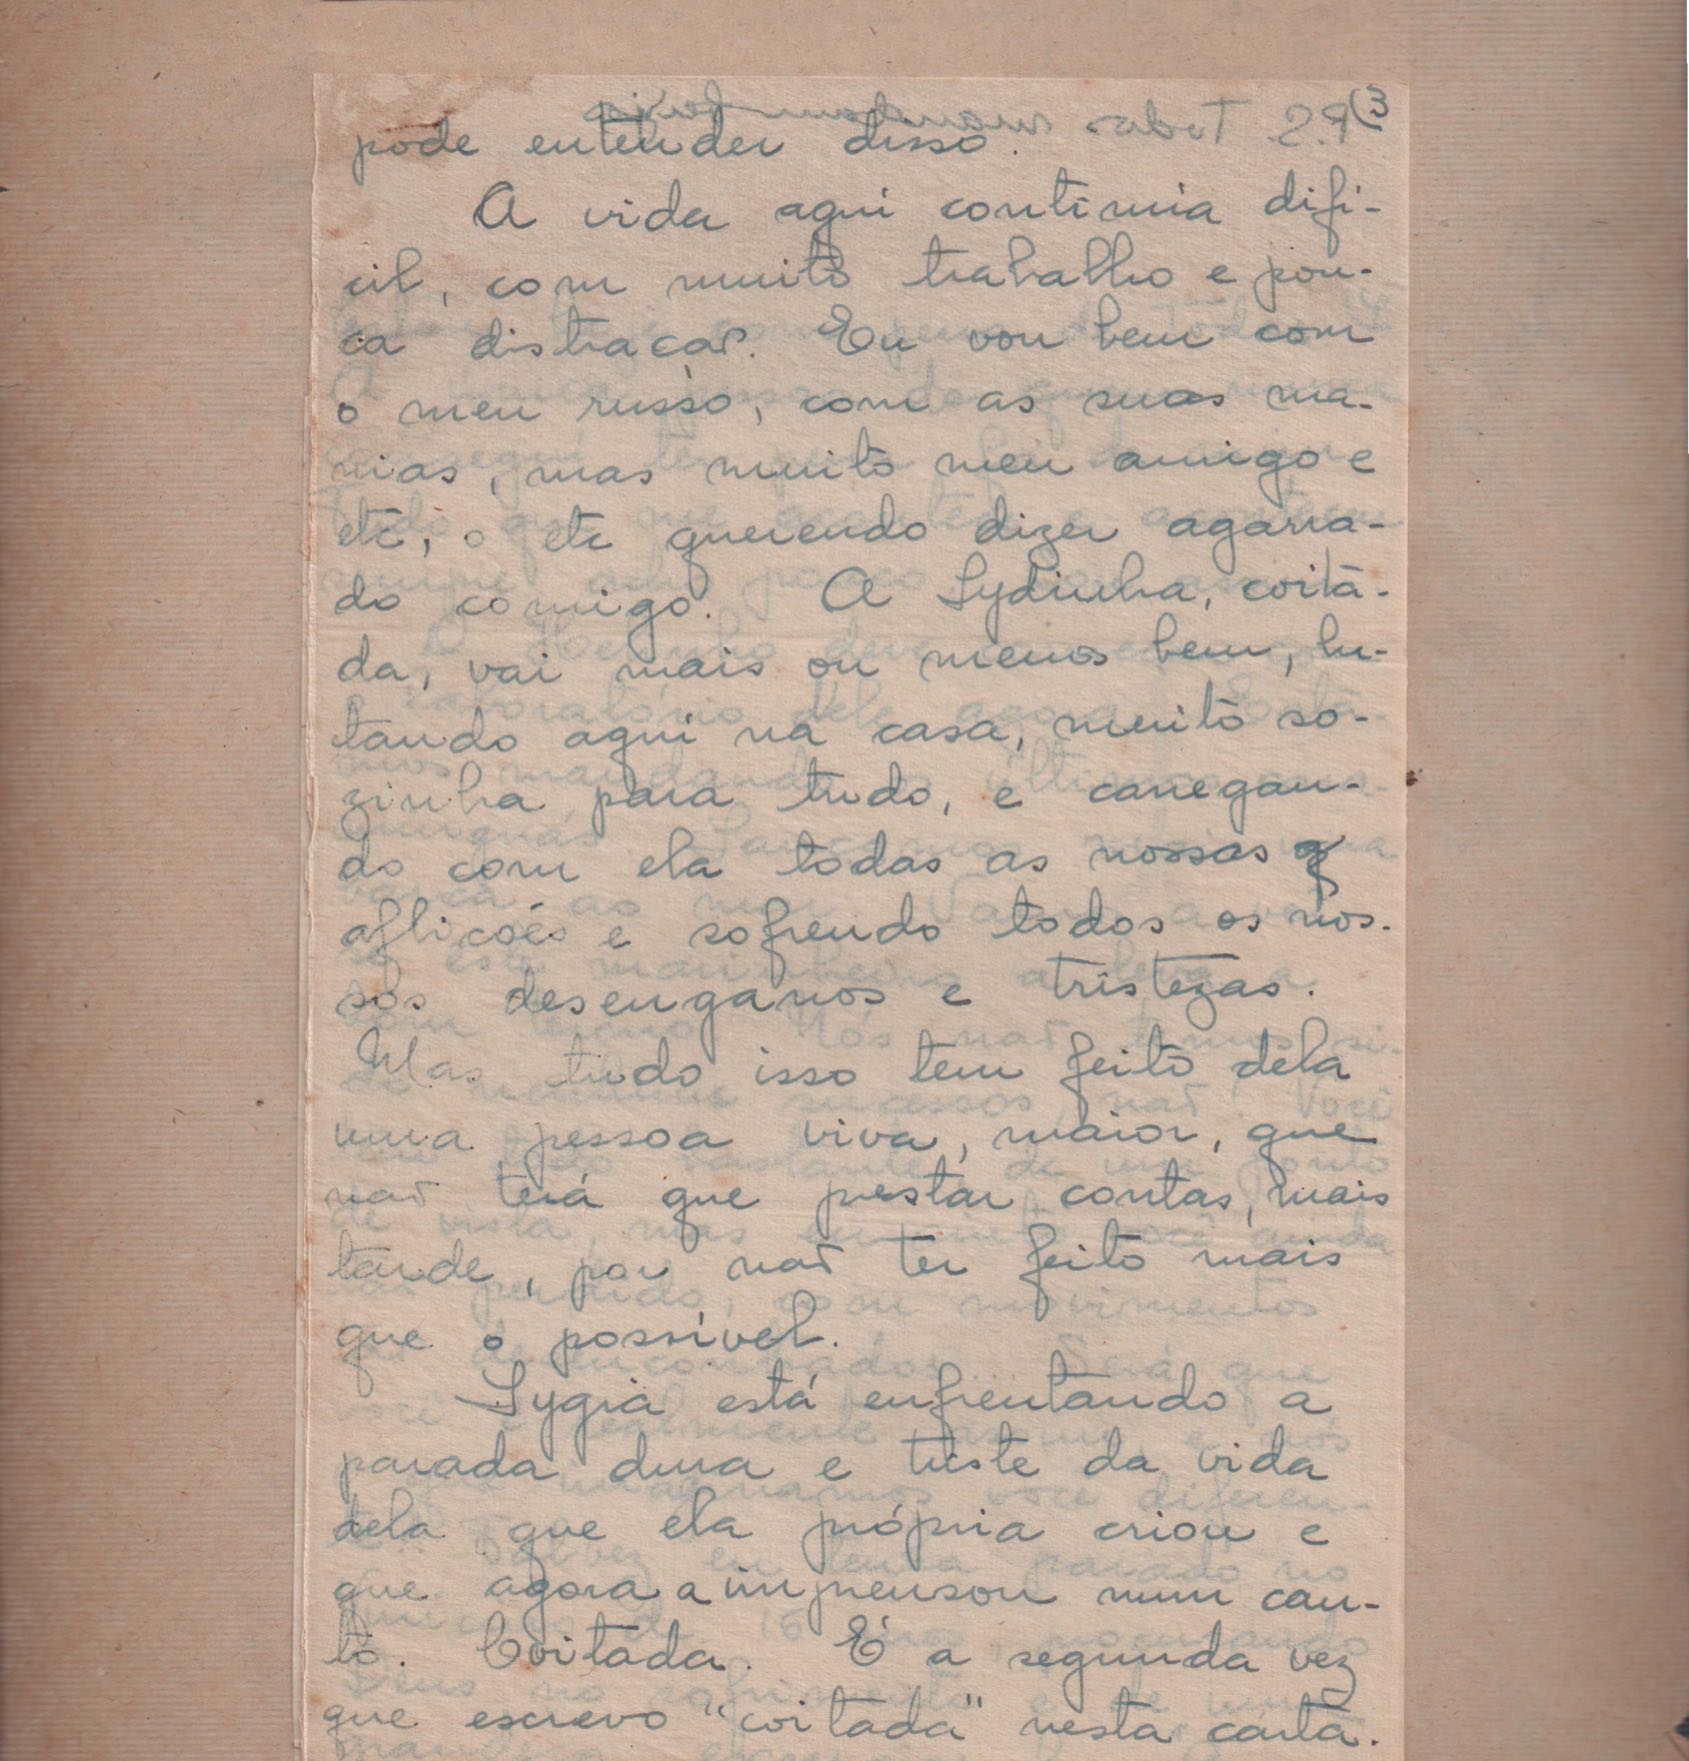 (3
pode entender disso.
A vida aqui continúa difi-
cil, com muito trabalho e pou-
ca distracão. Eu vou bem com
o meu russo, com as suas ma-
nias, mas muito meu amigo e
etc, o etc querendo dizer agarra-
do comigo. A Lydinha, coita-
da, vai mais ou menos bem, lu-
tando aqui na casa, muito so-
zinha para tudo, e carregan-
do com ela todas as nossas
aflições e sofrendo todos os nos-
sos desenganos e tristezas.
Mas tudo isso tem feito dela
uma pessoa viva, maior, que
não terá que prestar contas, mais
tarde, por não ter feito mais
que o possível.
Lygia está enfrentando a
parada dura e triste da vida
dela que ela própria criou e
que agora a imprensou num can-
to. Coitada. É a segunda vez
que escrevo "coitada" nesta carta.